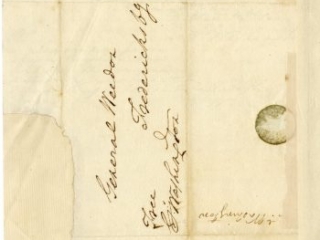 General Weedon
Fredericksbg
Free
G:Washington